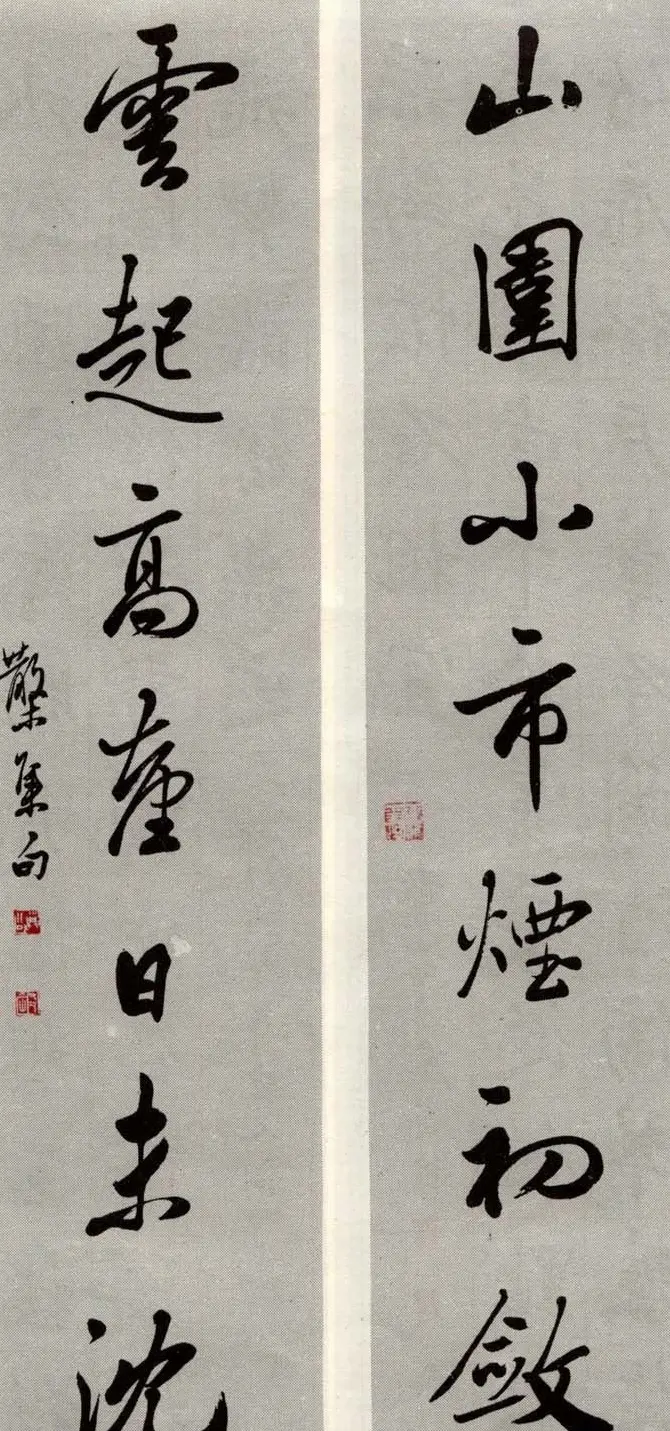 山圍小市煙初斂
雲起高臺日未沈
集句